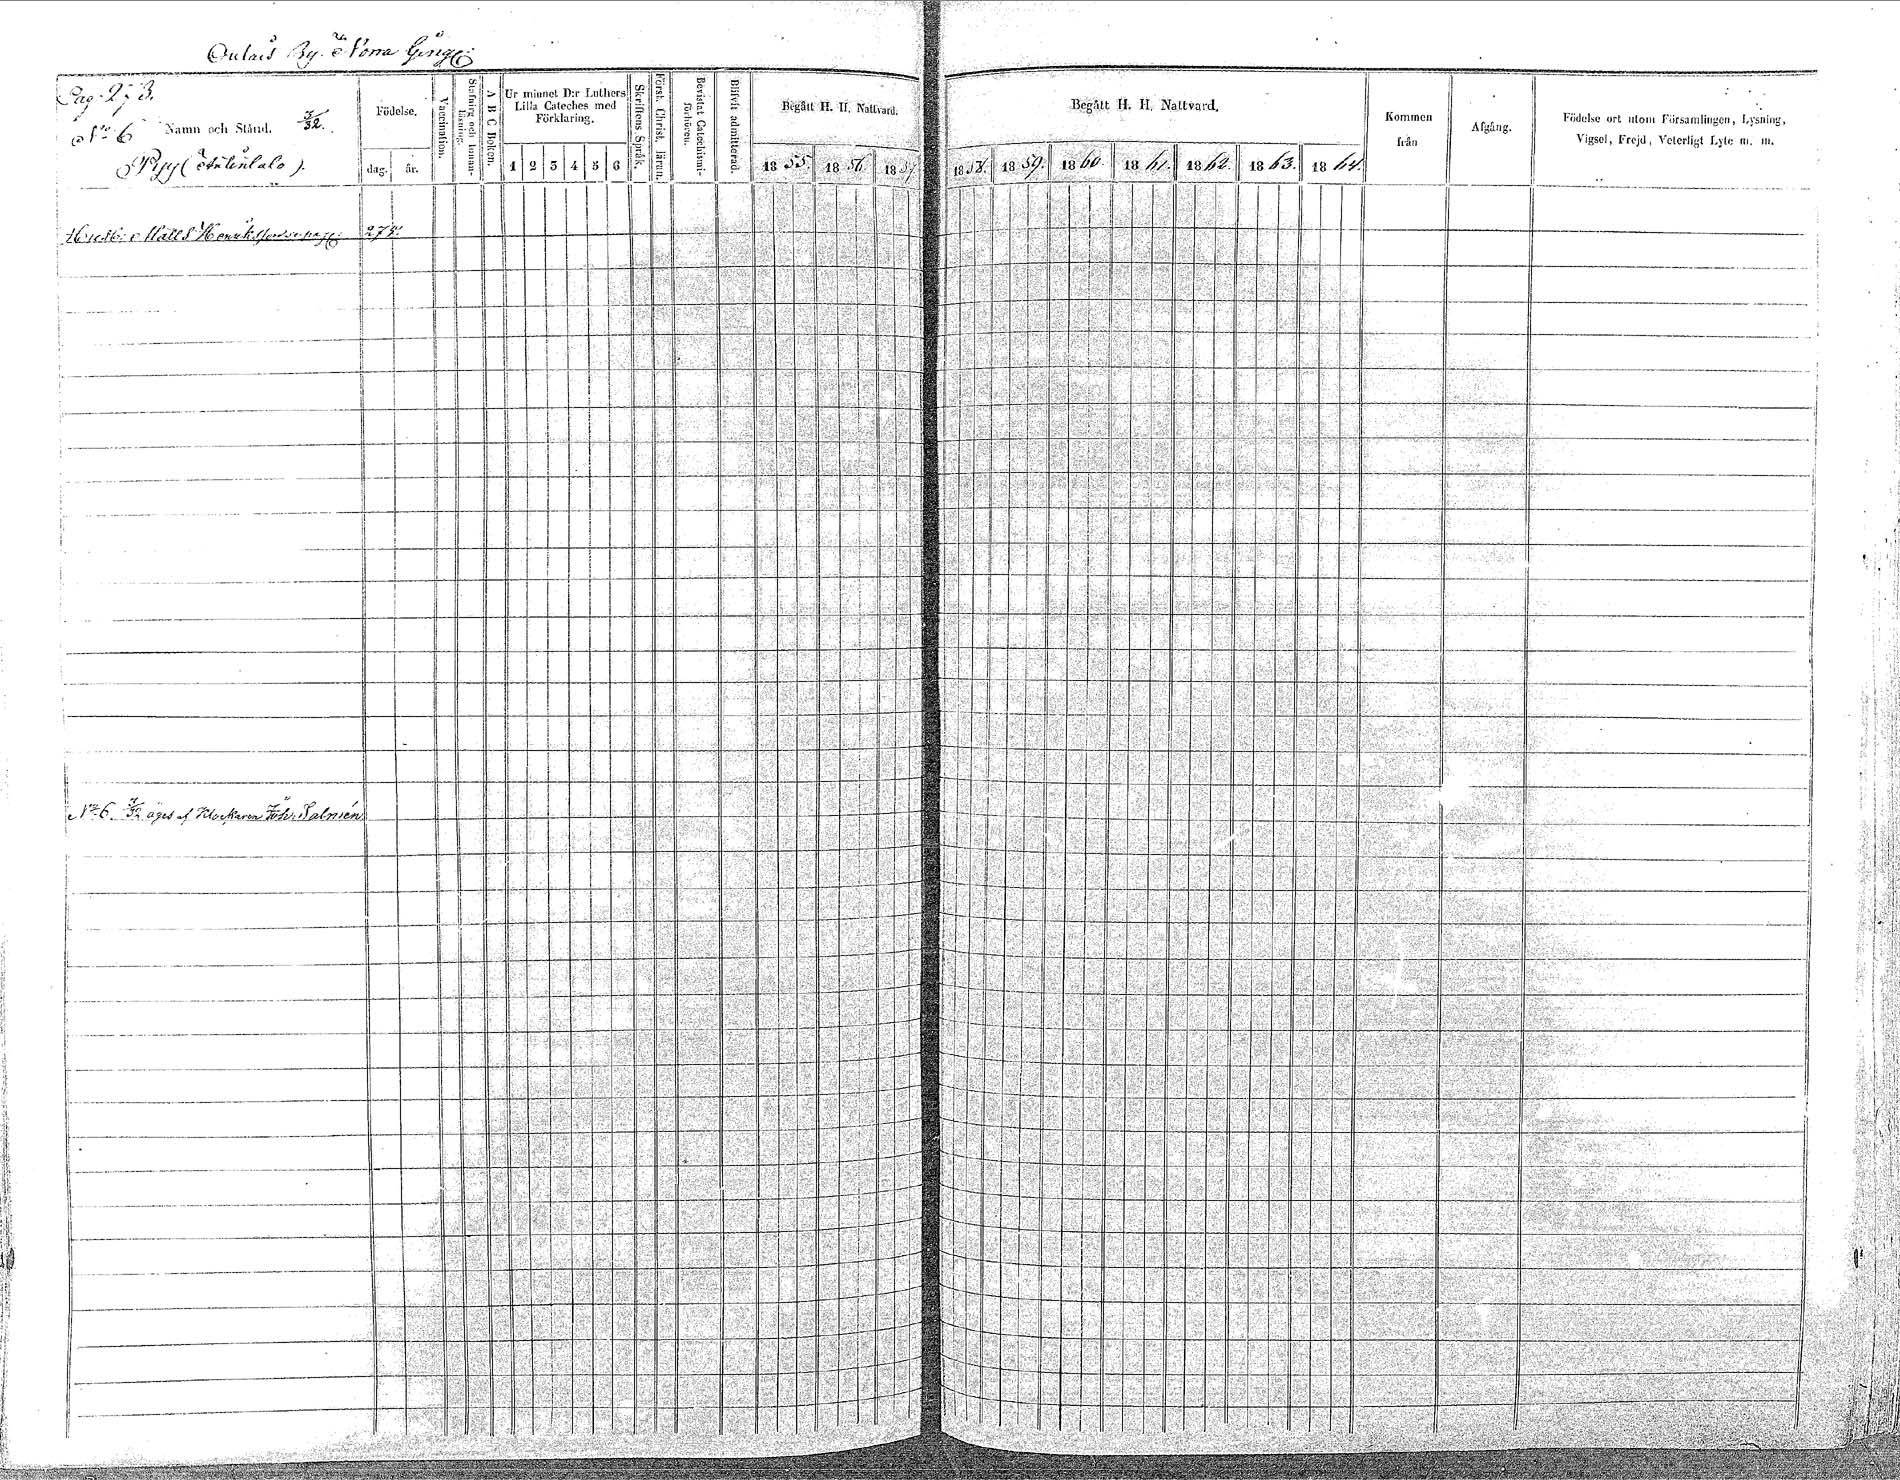 Oulais By. Norra
Pag. 273.
No 6 Namn och Stånd. 7/32.
Pyy (Anlulalo).
Födelse.
dag. år.
Vaccination.
Stafning och Innan-läsning.
A B C Boken.
Ur minnet D:r Luthers
Lilla Cateches med
Förklaring.
1 2 3 4 5 6
Skriftens Språk.
Först. Christ. läran.
Bevistat Catechismi-förhören.
Blifvit admitterad.
Begått H. H. Nattvard.
1855. 1856. 1857.
Begått H. H. Nattvard.
1858. 1859. 1860. 1861. 1862. 1863. 1864.
Kommen
från
Afgång.
Födelse ort utom Församlingen, Lysning,
Vigsel, Frejd, Veterligt Lyte m. m.
Matts Henriks 273.
No 6. äges af Klockaren Joh. Salmén